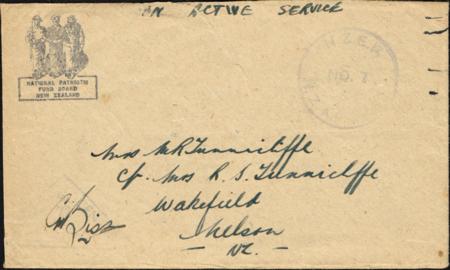 ON ACTIVE SERVICE
NATIONAL PATRIOTIC
FUND BOARD
NEW ZEALAND
NO. 7
Mrs M R Tunnicliffe
c/o Mrs R. S. Tunnicliffe
Wakefield
Nelson
NZ.